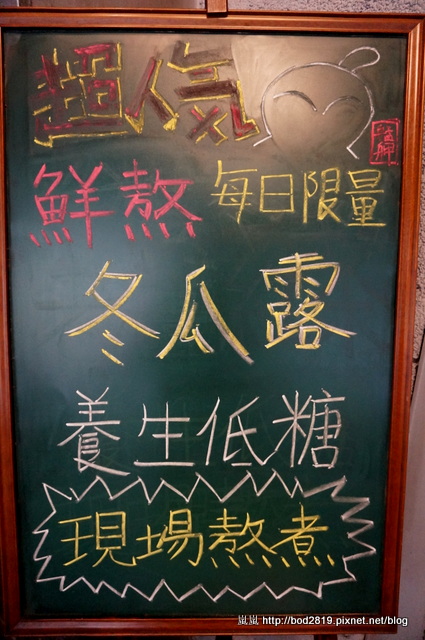 超人氣
鮮熬 每日限量
冬瓜露
養生低糖
現場熬煮
嵐嵐 http://bod2819.pixnet.net/blog